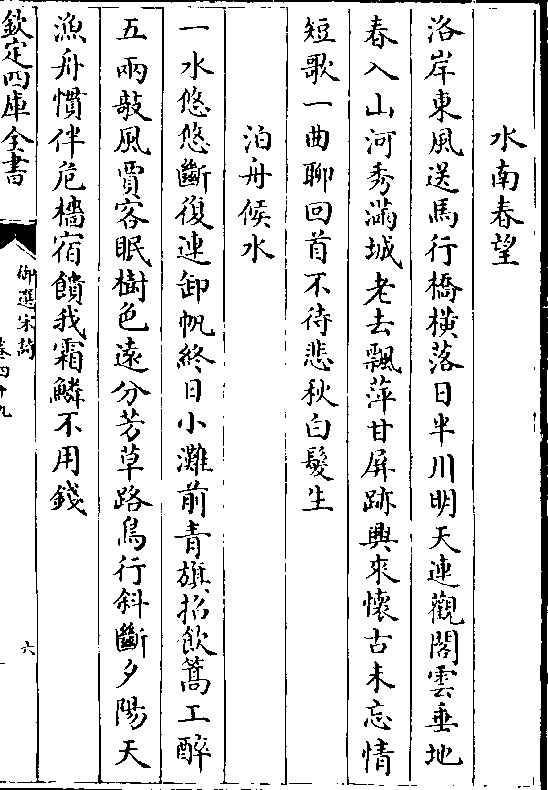 水南春望
洛岸東風送馬行橋横落日半川明天連觀閣雲垂地
春入山河秀滿城老去飄萍甘屏跡興來懷古未忘情
短歌一曲聊回首不待悲秋白髮生
泊舟候水
一水悠悠斷復連卸帆終日小灘前青旗招飲篙工醉
五兩敲風賈客眠樹色遠分芳草路鳥行斜斷夕陽天
漁舟慣伴危檣宿饋我霜鱗不用錢
欽定四庫全書
御選宋詩
卷四十九
六